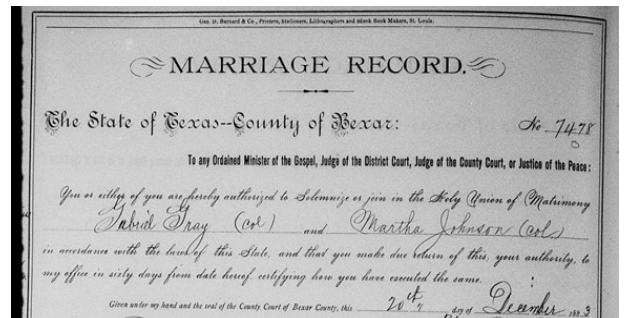 Geo. D. Barnard & Co., Printers, Stationers, Lithographers and Blank Book Makers, St. Louis.
MARRIAGE RECORD.
The State of Texas--County of Bexar: No 7478
To any Ordained Minister of the Gospel, Judge of the District Court, Judge of the County Court, or Justice of the Peace:
You or either of you are hereby authorized to Solemnize or join in the Holy Union of Matrimony
Gabriel Gray (col) and Martha Johnson (col)
in accordance with the laws of this State, and that you make due return of this, your authority, to
my office in sixty days from date hereof certifying how you have executed the same.
Given under my hand and the seal of the County Court of Bexar County, this 20th day of December 1883